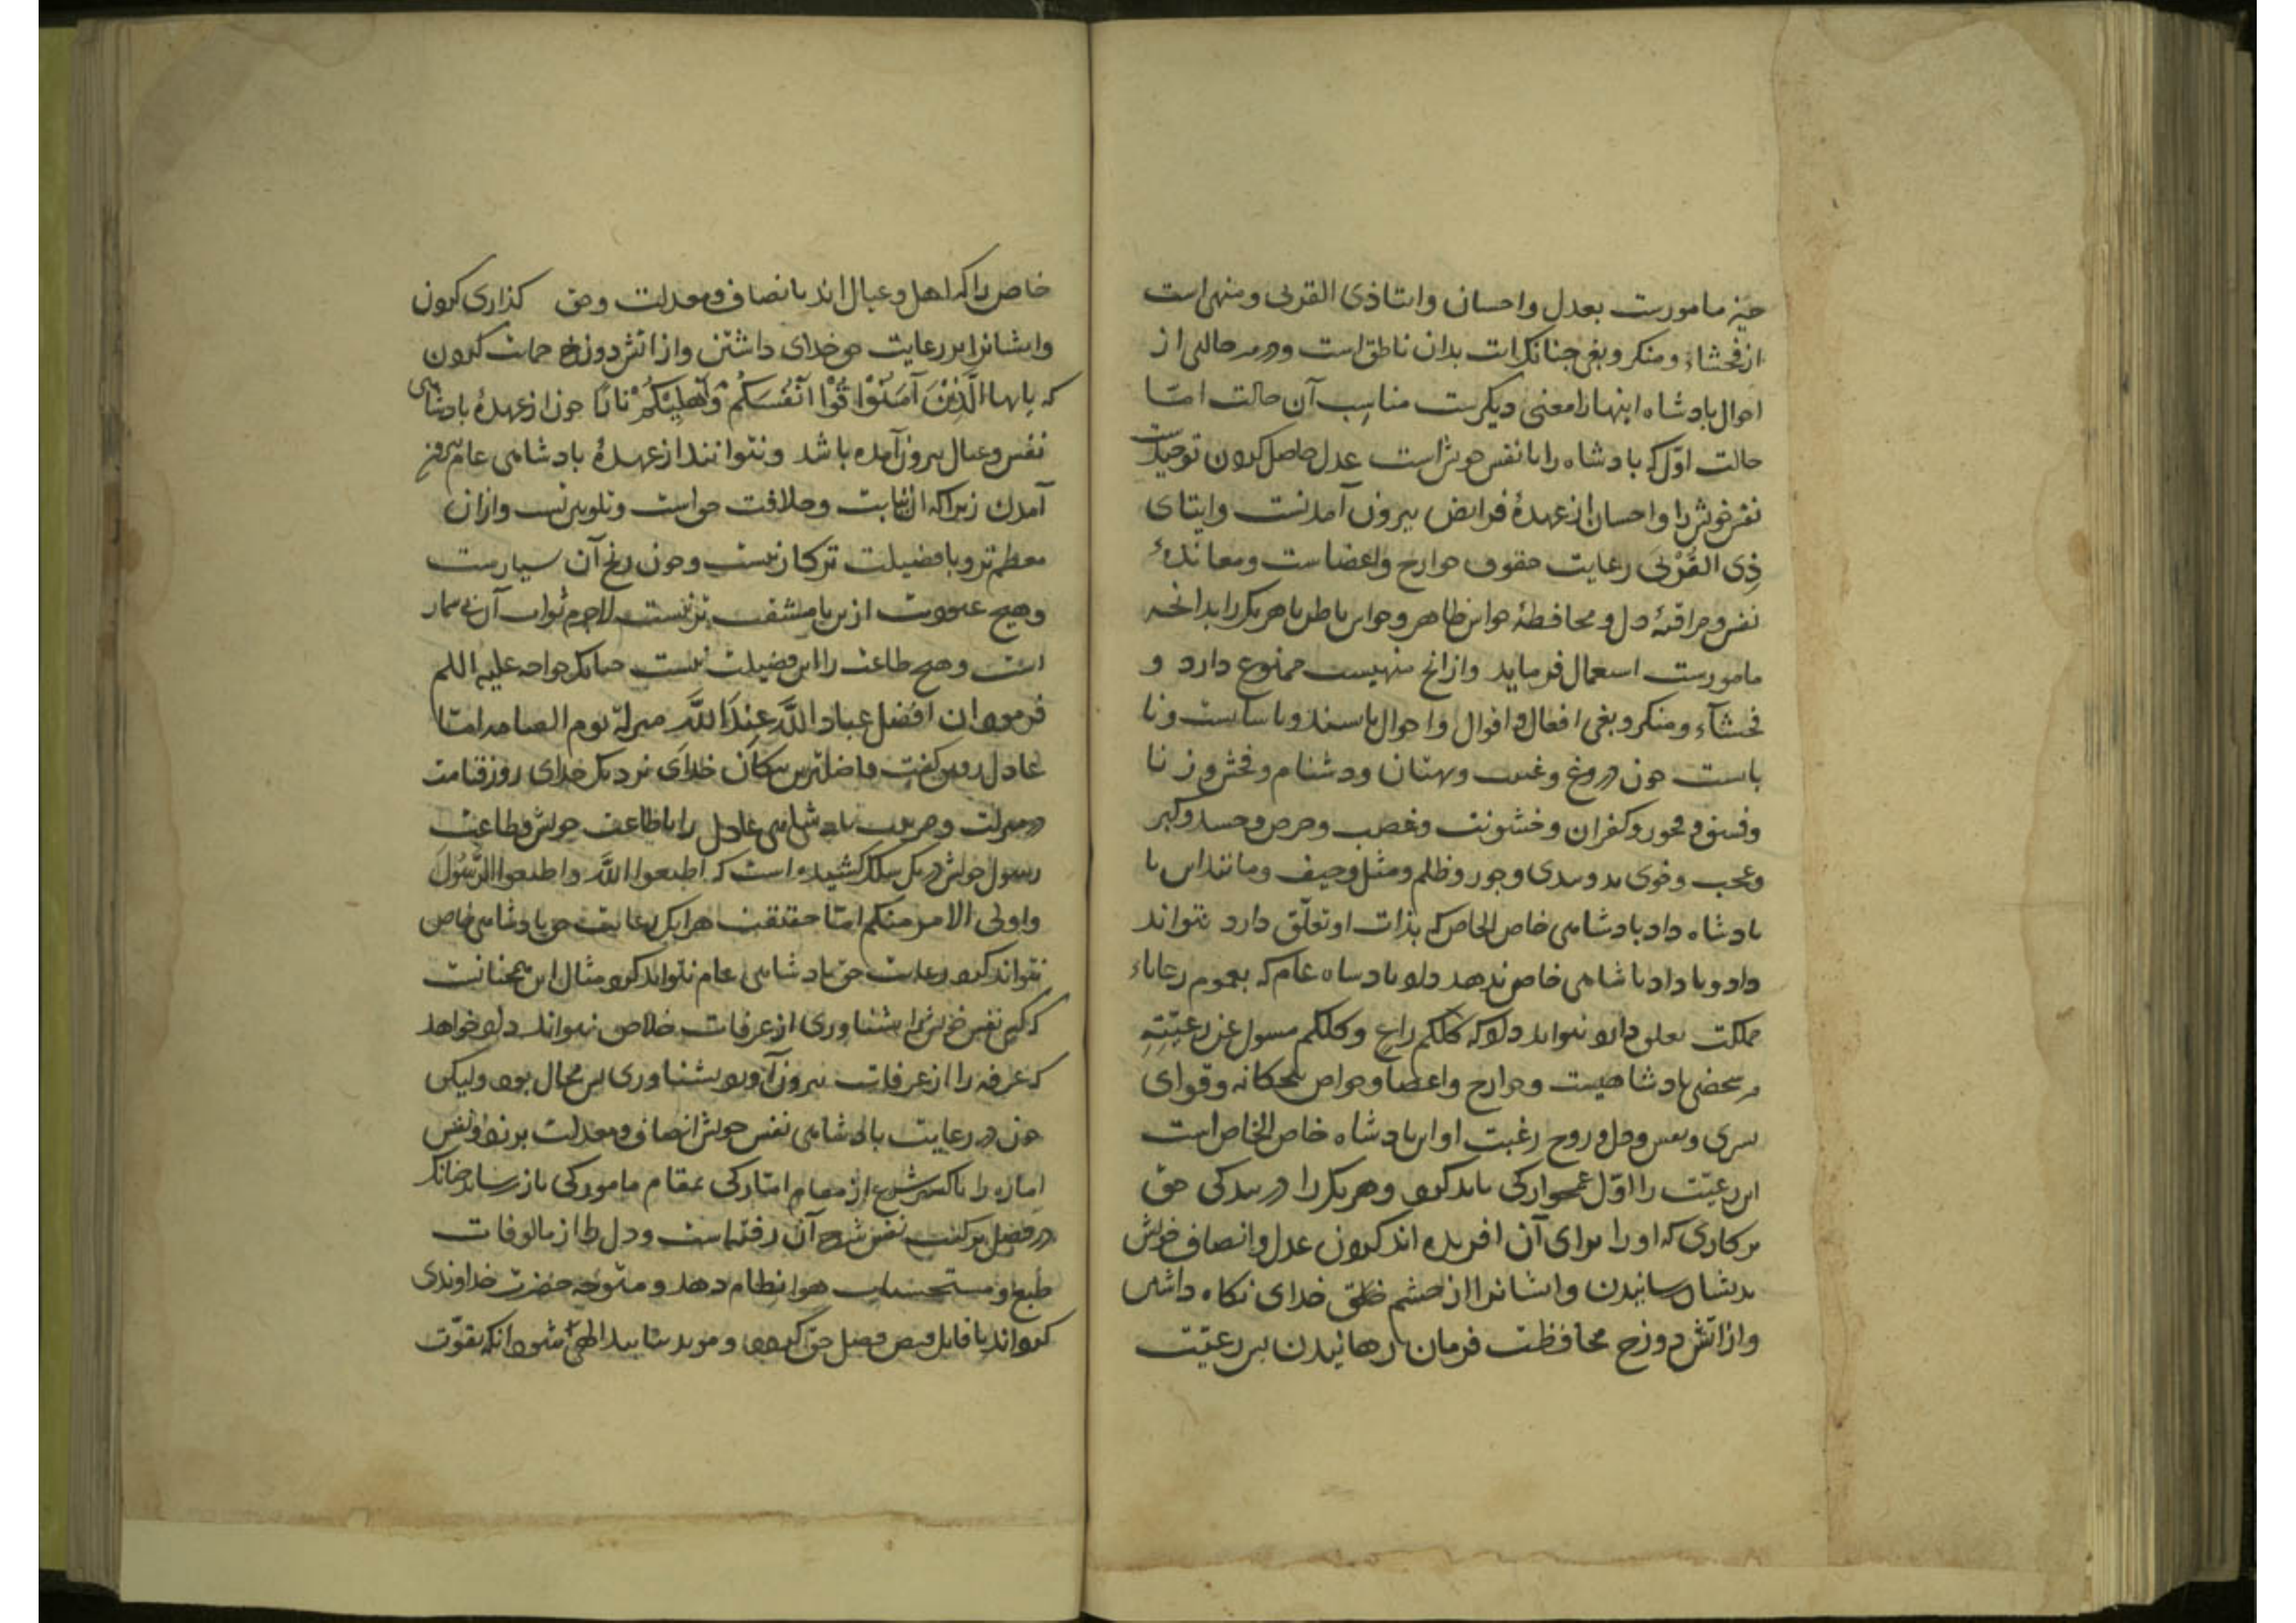 چیز مامورست بعدل و احسان و ایتا ذی القربی و منهی است
از فحشاء و منکر و بغی چنانک آیت بدان ناطق است و در هر حالتی از
احوال پادشاه اینها را معنی دیکرست مناسب آن حالت امّا
حالت اوّل که بادشاه را با نفس خویش است عدل حاصل کردن توحید است
نفس خویش را و احسان از عهدهٔ فرایض بیرون آمدنست و ایتای
ذِی القُرْبَی رعایت حقوق جوارح و اعضاست و معانده
نفس و مراقبهٔ دل و محافظهٔ حواس ظاهر و حواس باطن تا هر یک را بدانچه
مامورست استعمال فرماید و از انچ منهیست ممنوع دارد و
فحشآء و منکر و بغی افعال و اقوال و احوال ناپسند و ناشایست و نا
بایست چون دروغ و غیبت و بهتان و دشنام و فحش و زنا
و فسق و فجور و کفران و خشونت و غضب و حرص و حسد و کبر
و عجب و خوی بد و بدی و جور و ظلم و مثل و حیف و مانند این تا
بادشاه داد بادشاهی خاص الخاص که بذات او تعلّق دارد نتواند
داد و تا داد باشاهی خاص ندهد داد بادشاه عام که بعموم رعایاء
مملکت تعلق دارد نتواند داد که کلّکم راعٍ و کلکم مسول عن رعیّتِهِ
هر شخصی پادشاهیست و جوارح و اعضا و حواس پنجکانه و قوای
بشری و نفس و دل و روح رعیت او این بادشاه خاص الخاص است
این رعیّت را اوّل غمخوارکی باید کرد و هر یک را در بندکی حق
بر کاری که او را برای آن افریده اند کردن عدل و انصاف خویش
بدیشان رسانیدن و ایشانرا از خشم خدای نکاه داشتن
و از آتش دوزخ محافظت فرمان رهانیدن بس رعیّت
خاص را که اهل و عیال اند بانصاف و معدلت و حق کذاری کردن
و ایشانرا بر رعایت حق خدای داشتن و از آتش دوزخ حمایت کردن
که یا ایها الَّذِیْنَ آمَنُوْا قُوْا اَنْفُسَکُمْ وَ اَهْلِیْکُمْ نَارًا چون از عهدهٔ بادشاهی
نفس و عیال بیرون آمده باشد و نتوانند از عهدهٔ بادشاهی عام بیرون
آمدن زیرا که آن نیابت و خلافت حق است و تلو نبوتست و از ان
معظم تر و با فضیلت تر کار نیست و چون رنج آن بسیارست
و هیچ عبودیت ازین با مشقت تر نیست لاجرم ثواب آن بی شمار
است و هیچ طاعت را این فضیلت نیست چنانک خواجه علیه السلم
فرمود ان افضل عباد اللّه عند اللّه منزلة یوم القیامه امامًا
عادل رفیق کفت فاضلترین بندکان خدای نزدیک خدای روز قیامت
در منزلت و بادشاهی عادل را با طاعت خویش و طاعت
رسول خویش در یک سلک کشیده است که اطیعوا اللّه و اطیعوا الرّسول
و اولی الامر منکم امّا حقیقت هر ایک رعایت حق بادشاهی خاص
نتواند کرد رعایت حق بادشاهی عام نتواند کرد مثال این همچنانست
که کسی نفس خویش را بشناوری از غرقات خلاص نتواند داد خواهد
که غرقه را از غرقات بیرون آورد بشناوری بس محال بود ولیکن
چون در رعایت بادشاهی نفس خویش انصاف و معدلت برزد و نفس
امّاره را باکسیر شرع از مقام امّارکی بمقام مامورکی باز رساند چنانک
در فصل تزکیت نفس شرح آن رفته است و دل را از مالوفات
طبع و مستحسنات هوا نظام دهد و متوجه حضرت خداوندی
کرداند تا قابل فیض فضل حق کردد و موید بتایید الهی شود انکه بقوّت